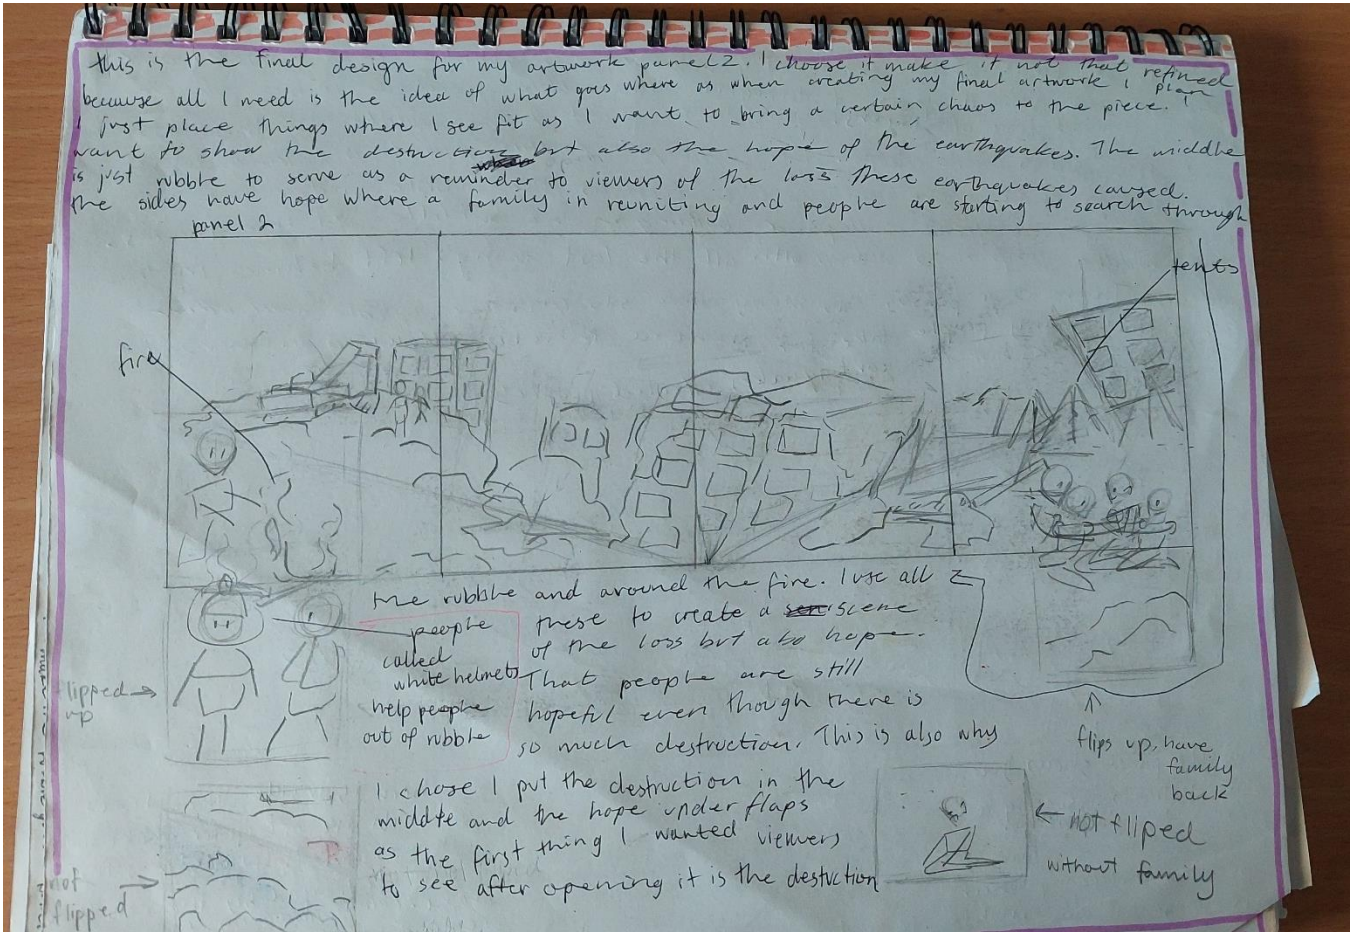 this is the final design for my artwork panel 2. I choose it make it not that refined
because all I need is the idea of what goes where as when creating my final artwork I plan
I just place things where I see fit as I want to bring a certain chaos to the piece. I
want to show the destruction but also the hope of the earthquakes. The middle
is just rubble to serve as a reminder to viewers of the loss these earthquakes caused.
the sides have hope where a family in reuniting and people are starting to search through
panel 2
tents
fire
the rubble and around the fire. I use all
these to create a scene
of the loss but also hope.
That people are still
hopeful even though there is
so much destruction. This is also why
people
called
white helmets
help people
out of rubble
flipped
up
flips up, have
family
back
I chose I put the destruction in the
middle and the hope under flaps
as the first thing I wanted viewers
to see after opening it is the destuction
not fliped
without family
not
flipped